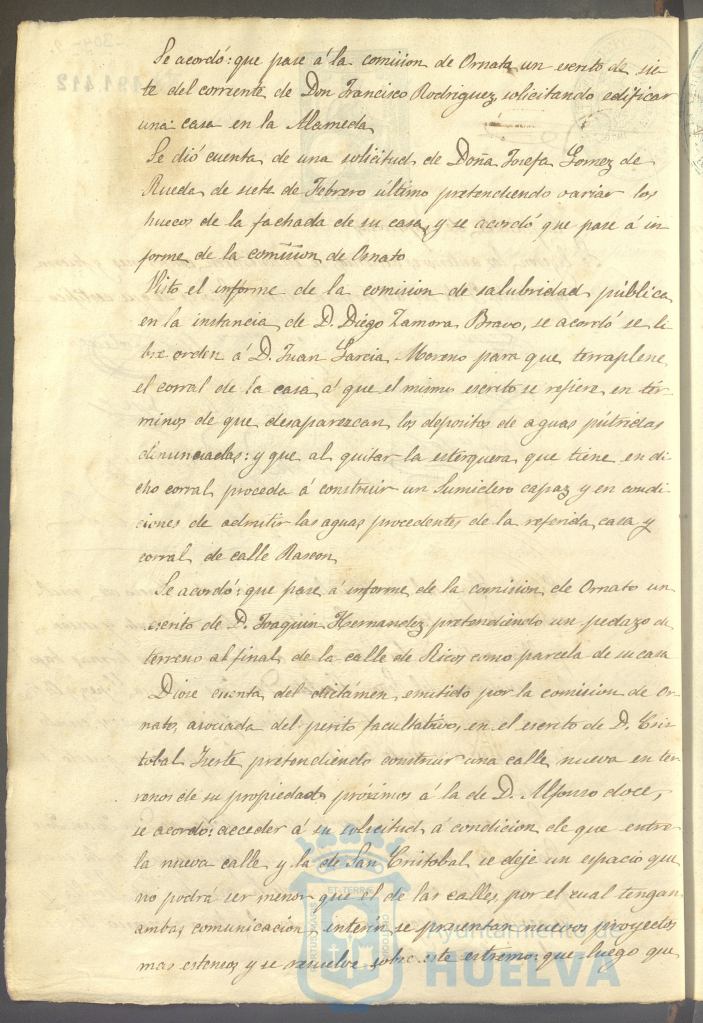 Se acordó: que pase á la comision de Ornato un escrito de sie-
te del corriente de Don Francisco Rodriguez, solicitando edificar
una casa en la Alameda
Se dió cuenta de una solicitud de Doña Josefa Gomez de
Rueda de siete de Febrero último pretendiendo variar los
huecos de la fachada de su casa, y se acordó que pase á in-
forme de la comision de Ornato
Visto el informe de la comision de salubridad pública
en la instancia de D. Diego Zamora Bravo, se acordó se li-
bre orden á D. Juan Garcia Moreno para que terraplene
el corral de la casa á que el mismo escrito se refiere en tér-
minos de que desaparezcan los depósitos de aguas pútridas
denunciadas: y que al quitar la esterquera que tiene en di-
cho corral proceda á construir un Sumidero capaz y en condi-
ciones de admitir las aguas procedentes de la referida casa y
corral de calle Rascon
Se acordó: que pase á informe de la comision de Ornato un
escrito de D. Joaquin Hernandez pretendiendo un pedazo de
terreno al final de la calle de Ricos como parcela de su casa
Diose cuenta del dictámen emitido por la comision de Or-
nato, asociada del perito facultativo, en el escrito de D. Cris-
tobal pretendiendo construir una calle nueva en ter-
renos de su propiedad próximos á la de D. Alfonso doce,
se acordó: acceder á su solicitud á condicion de que entre
la nueva calle y la de San Cristobal se deje un espacio que
no podrá ser menor que el de las calles, por el cual tengan
ambas comunicacion, interin se presentan nuevos proyectos
mas estensos y se resuelve sobre este estremo: que luego que
Ayuntamiento de
HUELVA